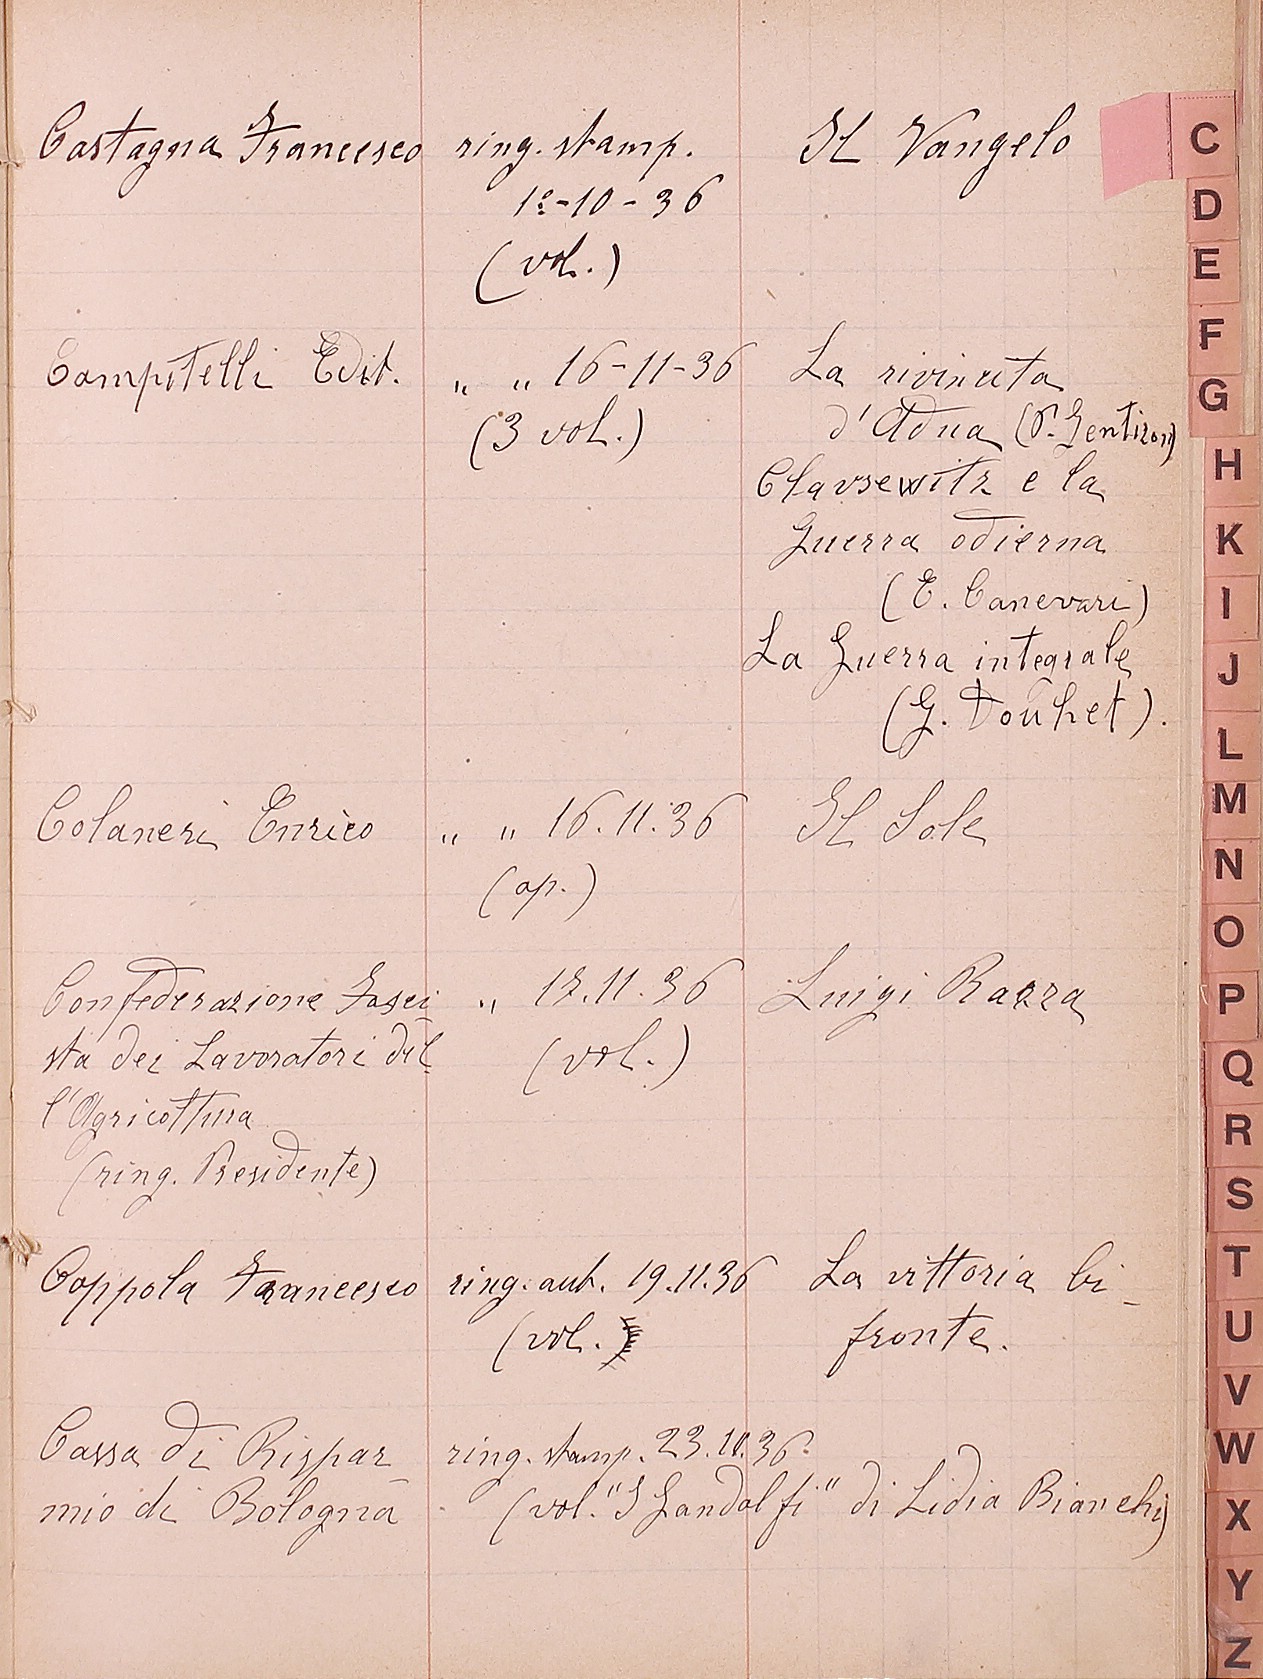 Castagna Francesco ring. stamp. Il Vangelo
1º-10-36
(vol.)
Campitelli Edit. „ „ 16-11-36 La rivincita
(3 vol.) d'Adua (P. Gentizon)
Clausewitz e la
Guerra odierna
(E. Canevari)
La Guerra integrale
(G. Douhet).
Colaneri Enrico „ „ 16.11.36 Il Sole
(op.)
Confederazione Fasci- „ 17.11.36 Luigi Razza
sta dei Lavoratori del- (vol.)
l'Agricoltura
(ring. Presidente)
Coppola Francesco ring. aut. 19.11.36 La vittoria bi-
(vol.) fronte.
Cassa di Rispar- ring. stamp. 23.11.36.
mio di Bologna (vol. "I Gandolfi" di Lidia Bianchi)
C
D
E
F
G
H
K
I
J
L
M
N
O
P
Q
R
S
T
U
V
W
X
Y
Z